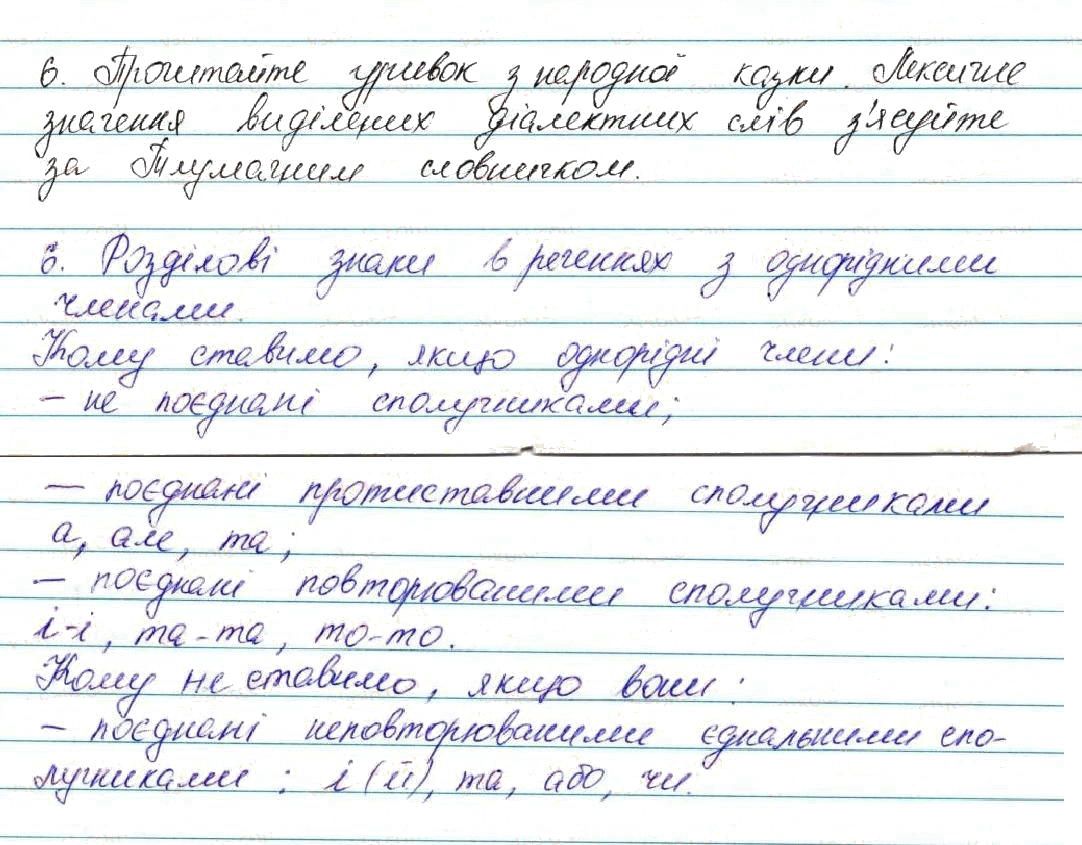 6. Прочитайте уривок з народної казки. Лексичне
значення виділених діалектних слів з'ясуйте
за Тлумачним словничком.
6. Розділові знаки в реченнях з однорідними
членами.
Кому ставимо, якщо однорідні члени:
– не поєднані сполучниками;
– поєднані протиставними сполучниками
а, але, та;
– поєднані повторюваними сполучниками:
і-і, та-та, то-то.
Кому не ставимо, якщо вони:
– поєднані неповторюваними єднальними спо-
лучниками: і (й), та, або, чи.